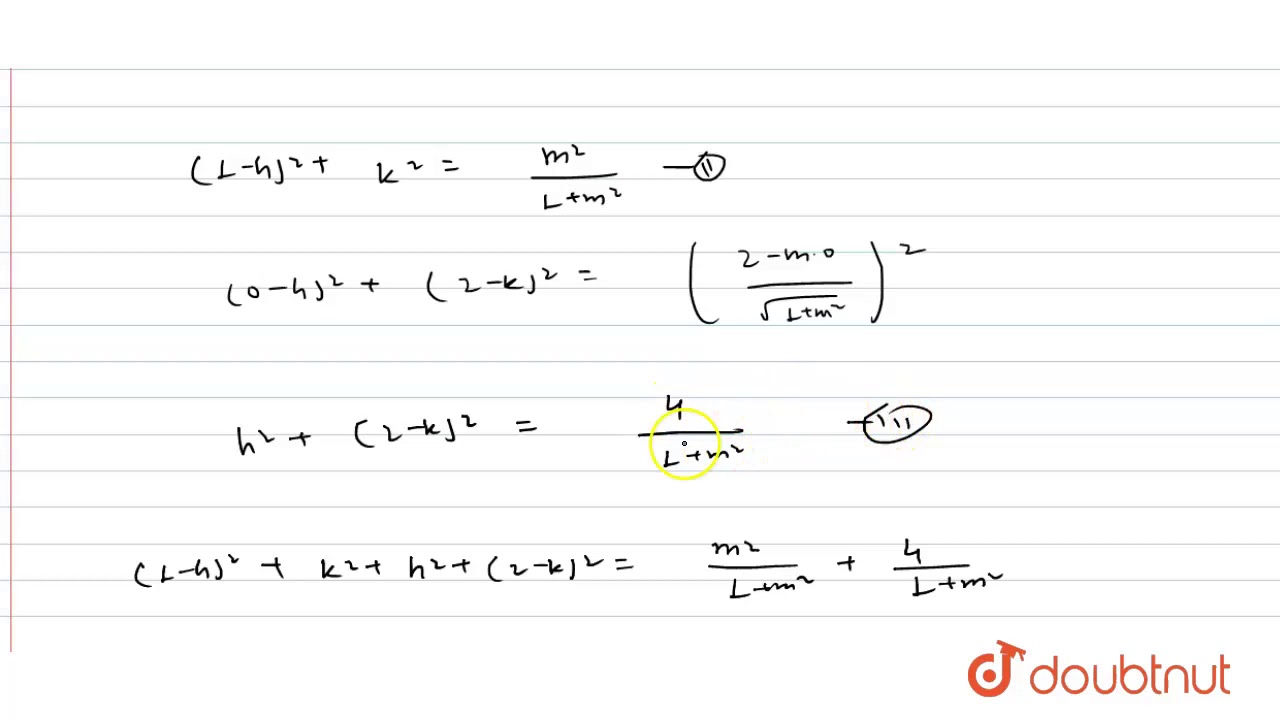 (1-h)² + k² = m²/(1+m²) —(ii)
(0-h)² + (2-k)² = ((2-m·0)/√(1+m²))²
h² + (2-k)² = 4/(1+m²) —(iii)
(1-h)² + k² + h² + (2-k)² = m²/(1+m²) + 4/(1+m²)
doubtnut